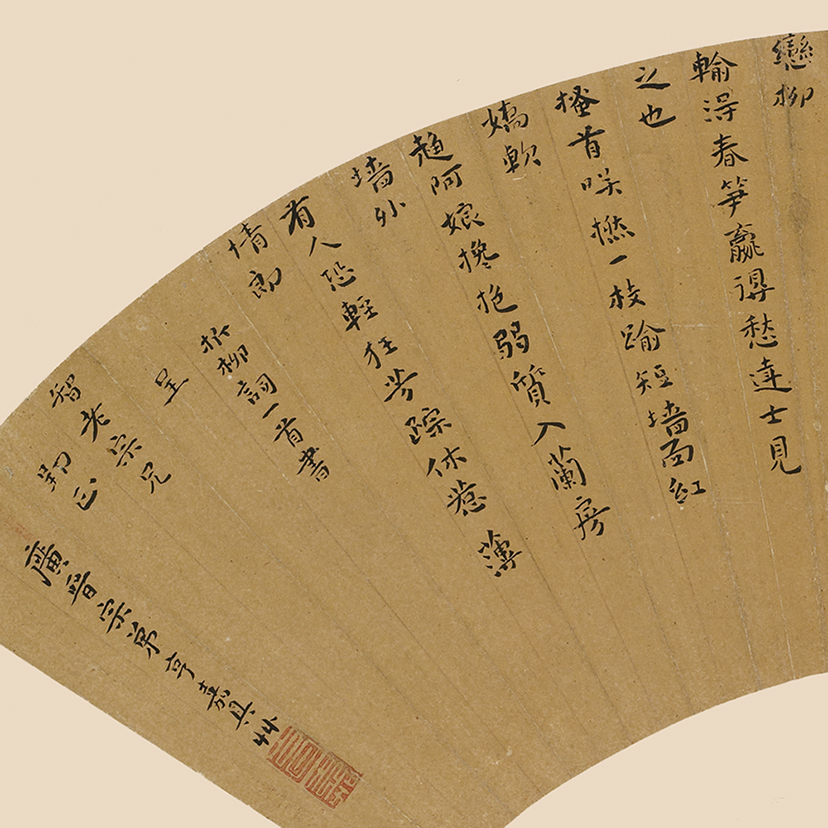 戀柳
輸淂春笋贏淂愁達士見
之也
搔首咲撚一枝踰短墻面紅
嬌軟
趙阿娘攙拖弱質入蘭房
墻外
有人恐輕狂芳蹤休惹薄
情郎
折柳詞一首書
呈
智老宗兄
郢正
廣晉宗弟亨嘉具艸